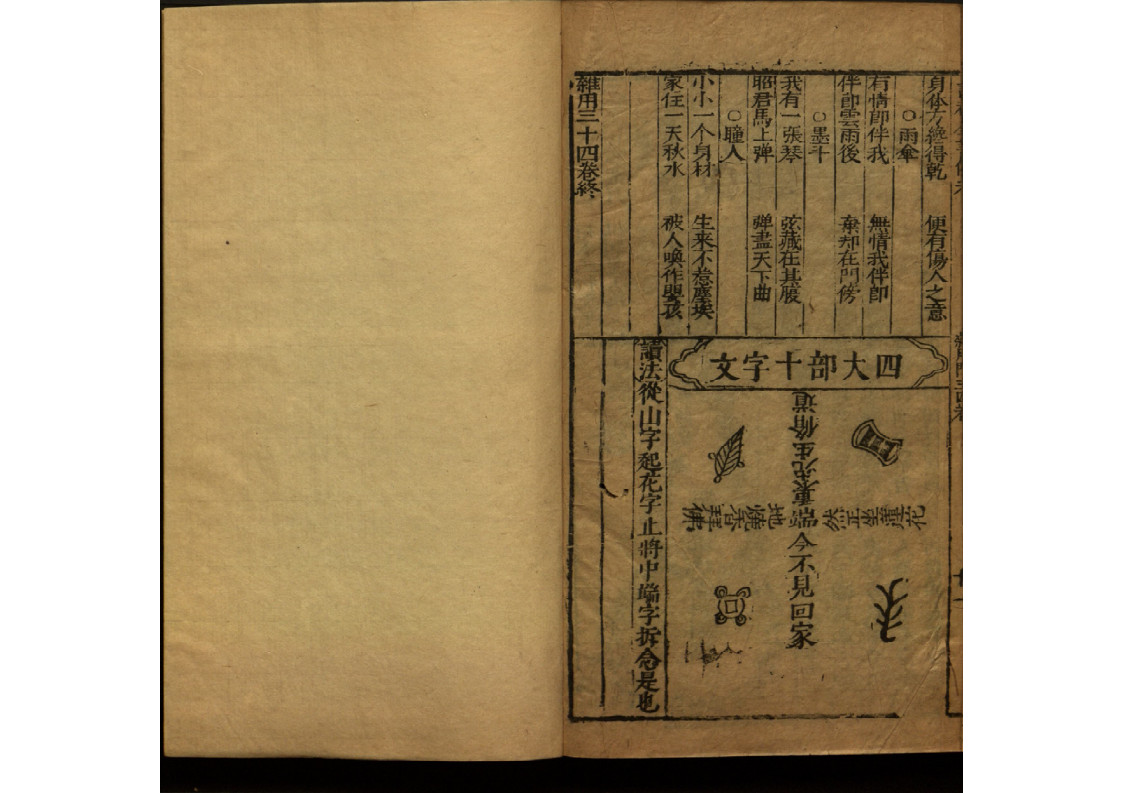 身体方纔得乾　便有傷人之意
○雨傘
有情郎伴我　無情我伴郎
伴郎雲雨後　棄却在門傍
○墨斗
我有一張琴　弦藏在其腹
昭君馬上弹　弹盡天下曲
○瞳人
小小一个身材　生来不惹塵埃
家住一天秋水　被人喚作嬰孩
雜用三十四卷終
四大部十字文
道脩生先
端
今不見回家
花
坐正然
地燒香拜佛
讀法從山字起花字止將中端字拆念是也